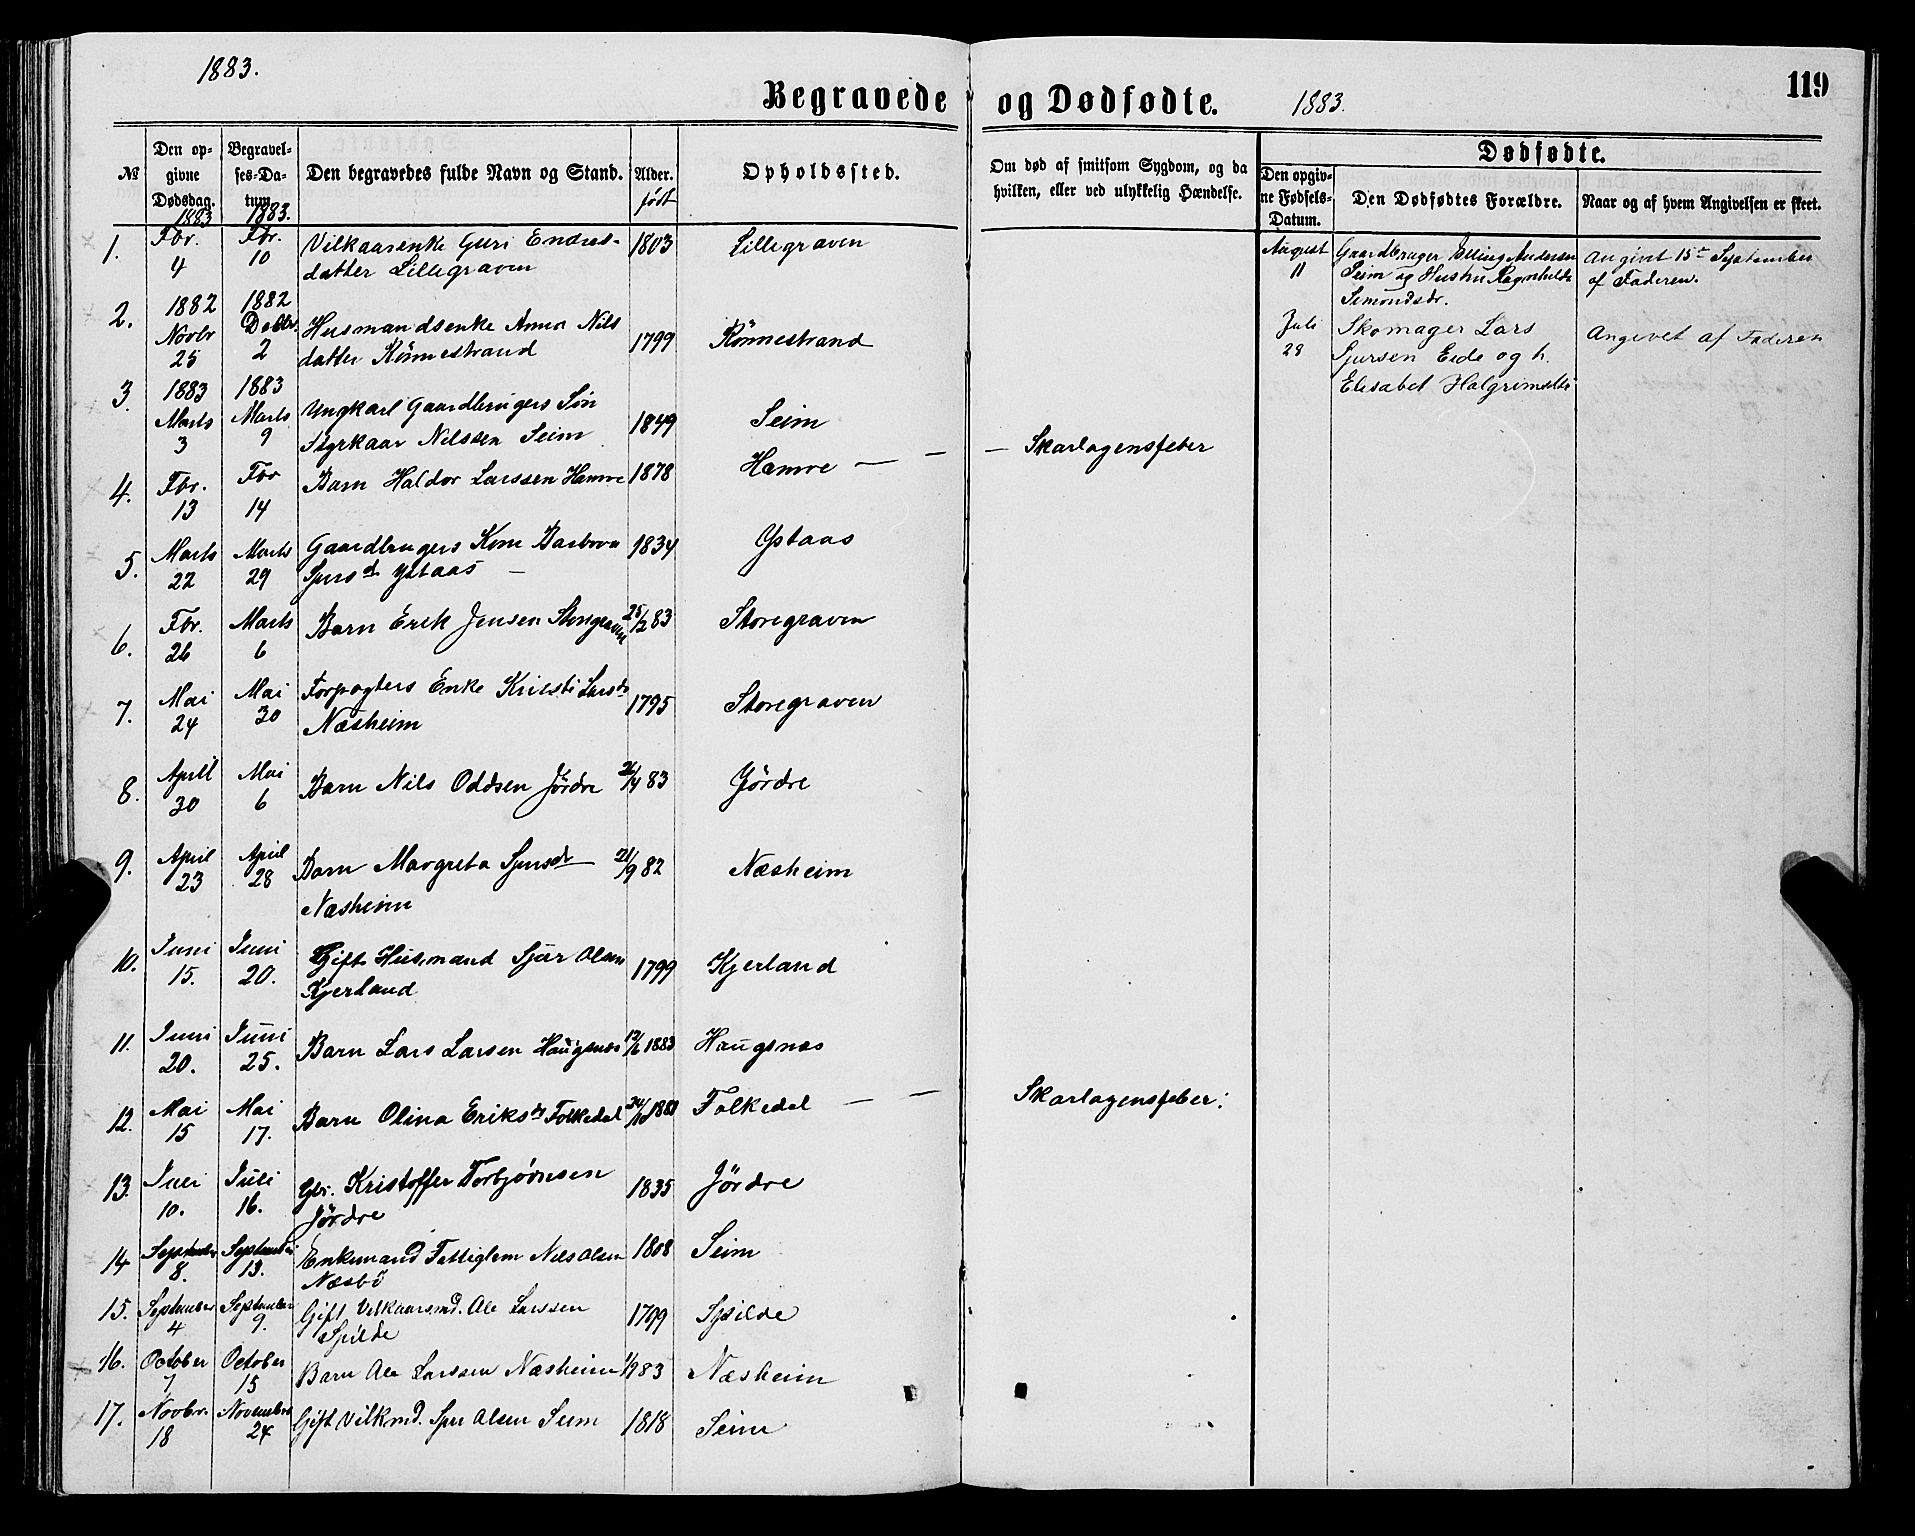 1883.
Begravede og Dødfødte.
1883.
119
№
Den opgivne Dødsdag.
1883
Begravelses-Datum.
1883.
Den begravedes fulde Navn og Stand.
Alder.
født
Opholdssted.
Om død af smitsom Sygdom, og da hvilken, eller ved ulykkelig Hændelse.
Dødfødte.
Den opgivne Fødsels-Datum.
Den Dødfødtes Forældre.
Naar og af hvem Angivelsen er skeet.
1. Fbr. 4 Fbr. 10 Vilkaarsenke Guri Endres- 1803 Lillegraven
datter Lillegraven
2. 1882 Novbr 25 1882 Decbr. 2 Husmandsenke Anna Nils 1799 Rønnestrand
datter Rønnestrand
3. 1883 Marts 3 1883 Marts 9 Ungkarl Gaardbrugers Søn
Styrkaar Nilssen Seim 1849 Seim
4. Fbr. 13 Fbr 14 Barn Haldor Larssen Hamre 1878 Hamre — — — Skarlagensfeber
5. Marts 22 Marts 29 Gaardbrugers Kone Barbora 1834 Ystaas
Sjursd. Ystaas —
6. Fbr. 26 Marts 6 Barn Erik Jensen Storegraven 25/2 83 Storegraven
7. Mai 24 Mai 30 Forpagters Enke Kristi Larsdr 1795 Storegraven
Næsheim
8. April 30 Mai 6 Barn Nils Oddsen Jørdre /4 83 Jørdre
9. April 23 April 28 Barn Margreta Sjursdr 21/9 82 Næsheim
Næsheim
10. Juni 15. Juni 20. Gift Husmand Sjur Olsen 1799 Kjerland
Kjerland
11. Juni 20. Juni 25. Barn Lars Larsen Haugsnæs /6 1883 Haugsnæs
12. Mai 15 Mai 17. Barn Olina Eriksdr Folkedal Folkedal — — Skarlagensfeber:
13. Juli 10. Juli 16. Gbr. Kristoffer Torbjørnsen 1835 Jørdre
Jørdre
14 September 8. September 13. Enkemand Fattiglem Nils Olsen 1808 Seim
Næsbø
15. September 4 September 9. Gift Vilkaarsmd. Ole Larssen 1799 Spilde
Spilde
16. October 7 October 15 Barn Ole Larssen Næsheim /9 83 Næsheim
17. Novbr. 18 November 24 Gift Vilkmd. Sjur Olsen Seim 1818 Seim
August 11 Gaardbruger Elling Andersen
Seim og Hustru Ragnhilda
Simondsdr.
Angivet 15de September
af Faderen.
Juli 28 Skomager Lars
Sjursen Eide og h.
Elisabet Halgrimsdtr
Angivet af Faderen